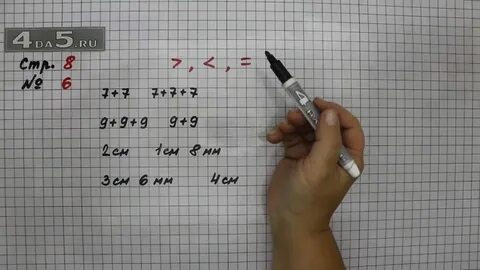 4DA5.RU
Стр. 8 >, <, =
№ 6
7+7 7+7+7
9+9+9 9+9
2 см 1 см 8 мм
3 см 6 мм 4 см